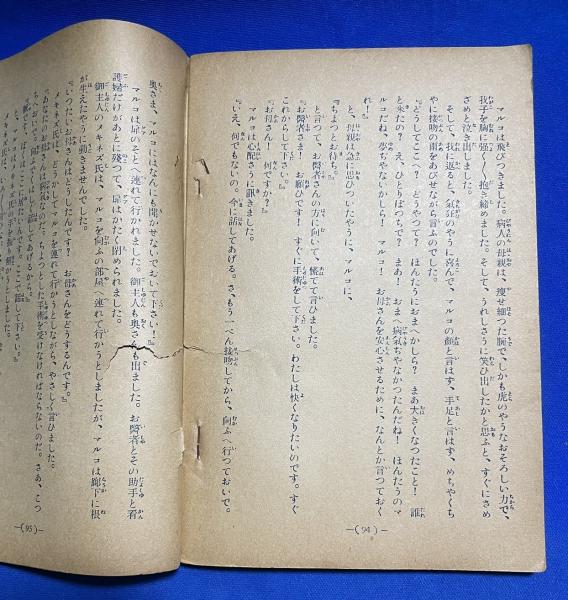 マルコは飛びつきました。病人の母親は、痩せ細つた腕で、しかも虎のやうなおそろしい力で、
我子を胸に強く〱抱き締めました。そして、うれしさうに笑ひ出したかと思ふと、すぐにさめ
ざめと泣き出しました。
そして、我に返ると、気狂のやうに喜んで、マルコの顔と言はず、手足と言はず、めちやくち
やに接吻の雨をあびせながら言ふのでした。
『どうしてここへ？　どうやつて？　ほんたうにおまへかしら？　まあ大きくなつたこと！　誰
と来たの？　え、ひとりぼつちで？　まあ！　おまへ病気ぢやなかつたんだね！　ほんたうのマ
ルコだね、夢ぢやないかしら！　マルコ！　お母さんを安心させるために、なんとか言つておく
れ！』
と、母親は急に思ひついたやうに、マルコに、
『ちよつとお待ち。』
と言つて、お医者さんの方に向いて、慌てて言ひました。
『お医者さま！　お願ひです！　すぐに手術をして下さい。わたしは快くなりたいのです。すぐ
これからして下さい。』
『お母さん！　何ですか？』
マルコは心配さうに訊きました。
『いえ、何でもないの。今に話してあげる。さ、もう一ぺん接吻してから、向ふへ行つておいで。
—( 94 )—
奥さま、マルコにはなんにも聞かせないでおいて下さい！』
マルコは扉のそとへ連れて行かれました。御主人も奥さんも出ました。お医者とその助手と看
護婦だけがあとに残つて、扉はかたく閉められました。
御主人のメキネズ氏は、マルコを向ふの部屋へ連れて行かうとしましたが、マルコは廊下に根
が生えたやうに動きませんでした。
『いつたいお母さんはどうしたんです？　お母さんをどうするんです。』
メキネズ氏は、どうかしてマルコを連れて行かうとしながら、やさしく言ひました。
『あなたのお母さんは病気なのだ。ちよつとした手術を受けなければならないのだ。さあ、こつ
—( 95 )—